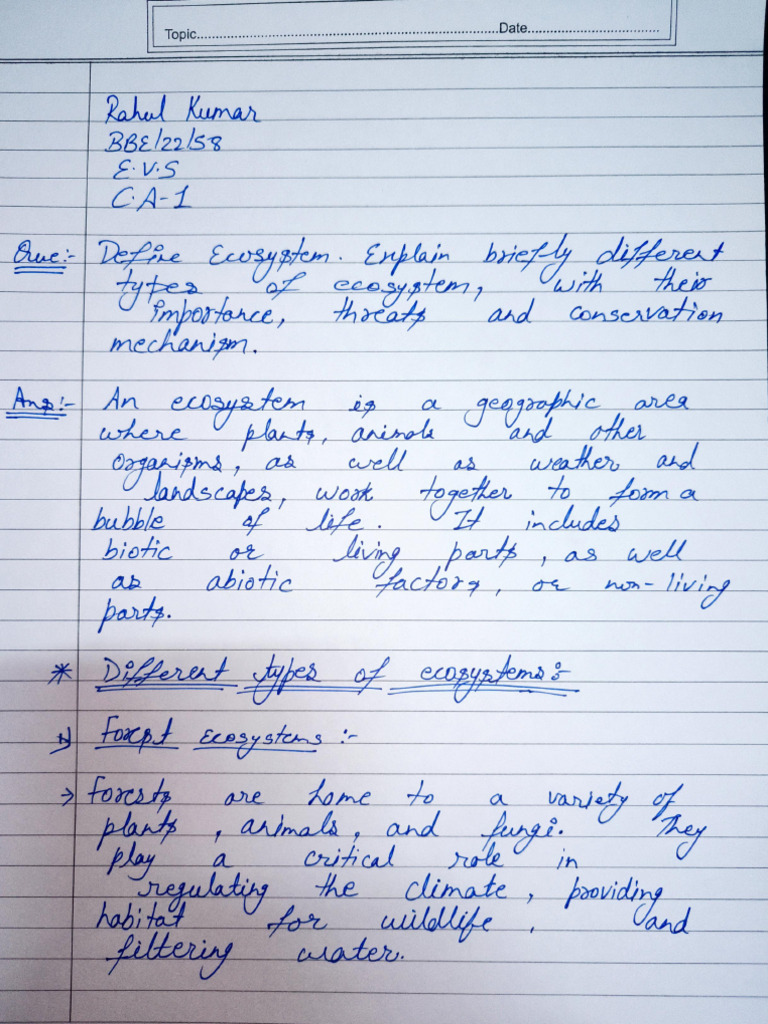 Topic.....................................................................................Date.......................................
Rahul Kumar
BBE/22/58
E.V.S
C.A-1
Que:- Define Ecosystem. Explain briefly different
types of ecosystem, with their
importance, threats and conservation
mechanism.
Ans:- An ecosystem is a geographic area
where plants, animals and other
organisms, as well as weather and
landscapes, work together to form a
bubble of life. It includes
biotic or living parts, as well
as abiotic factors, or non-living
parts.
* Different types of ecosystems:-
1) Forest ecosystems :-
→ Forests are home to a variety of
plants, animals, and fungi. They
play a critical role in
regulating the climate, providing
habitat for wildlife, and
filtering water.